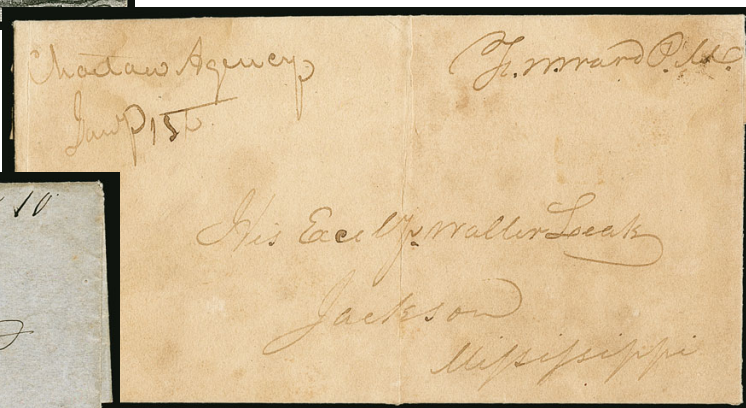 Choctaw Agency
Jany 15th
W. Ward P.M.
His Excely Walter Leak
Jackson
Mississippi
10